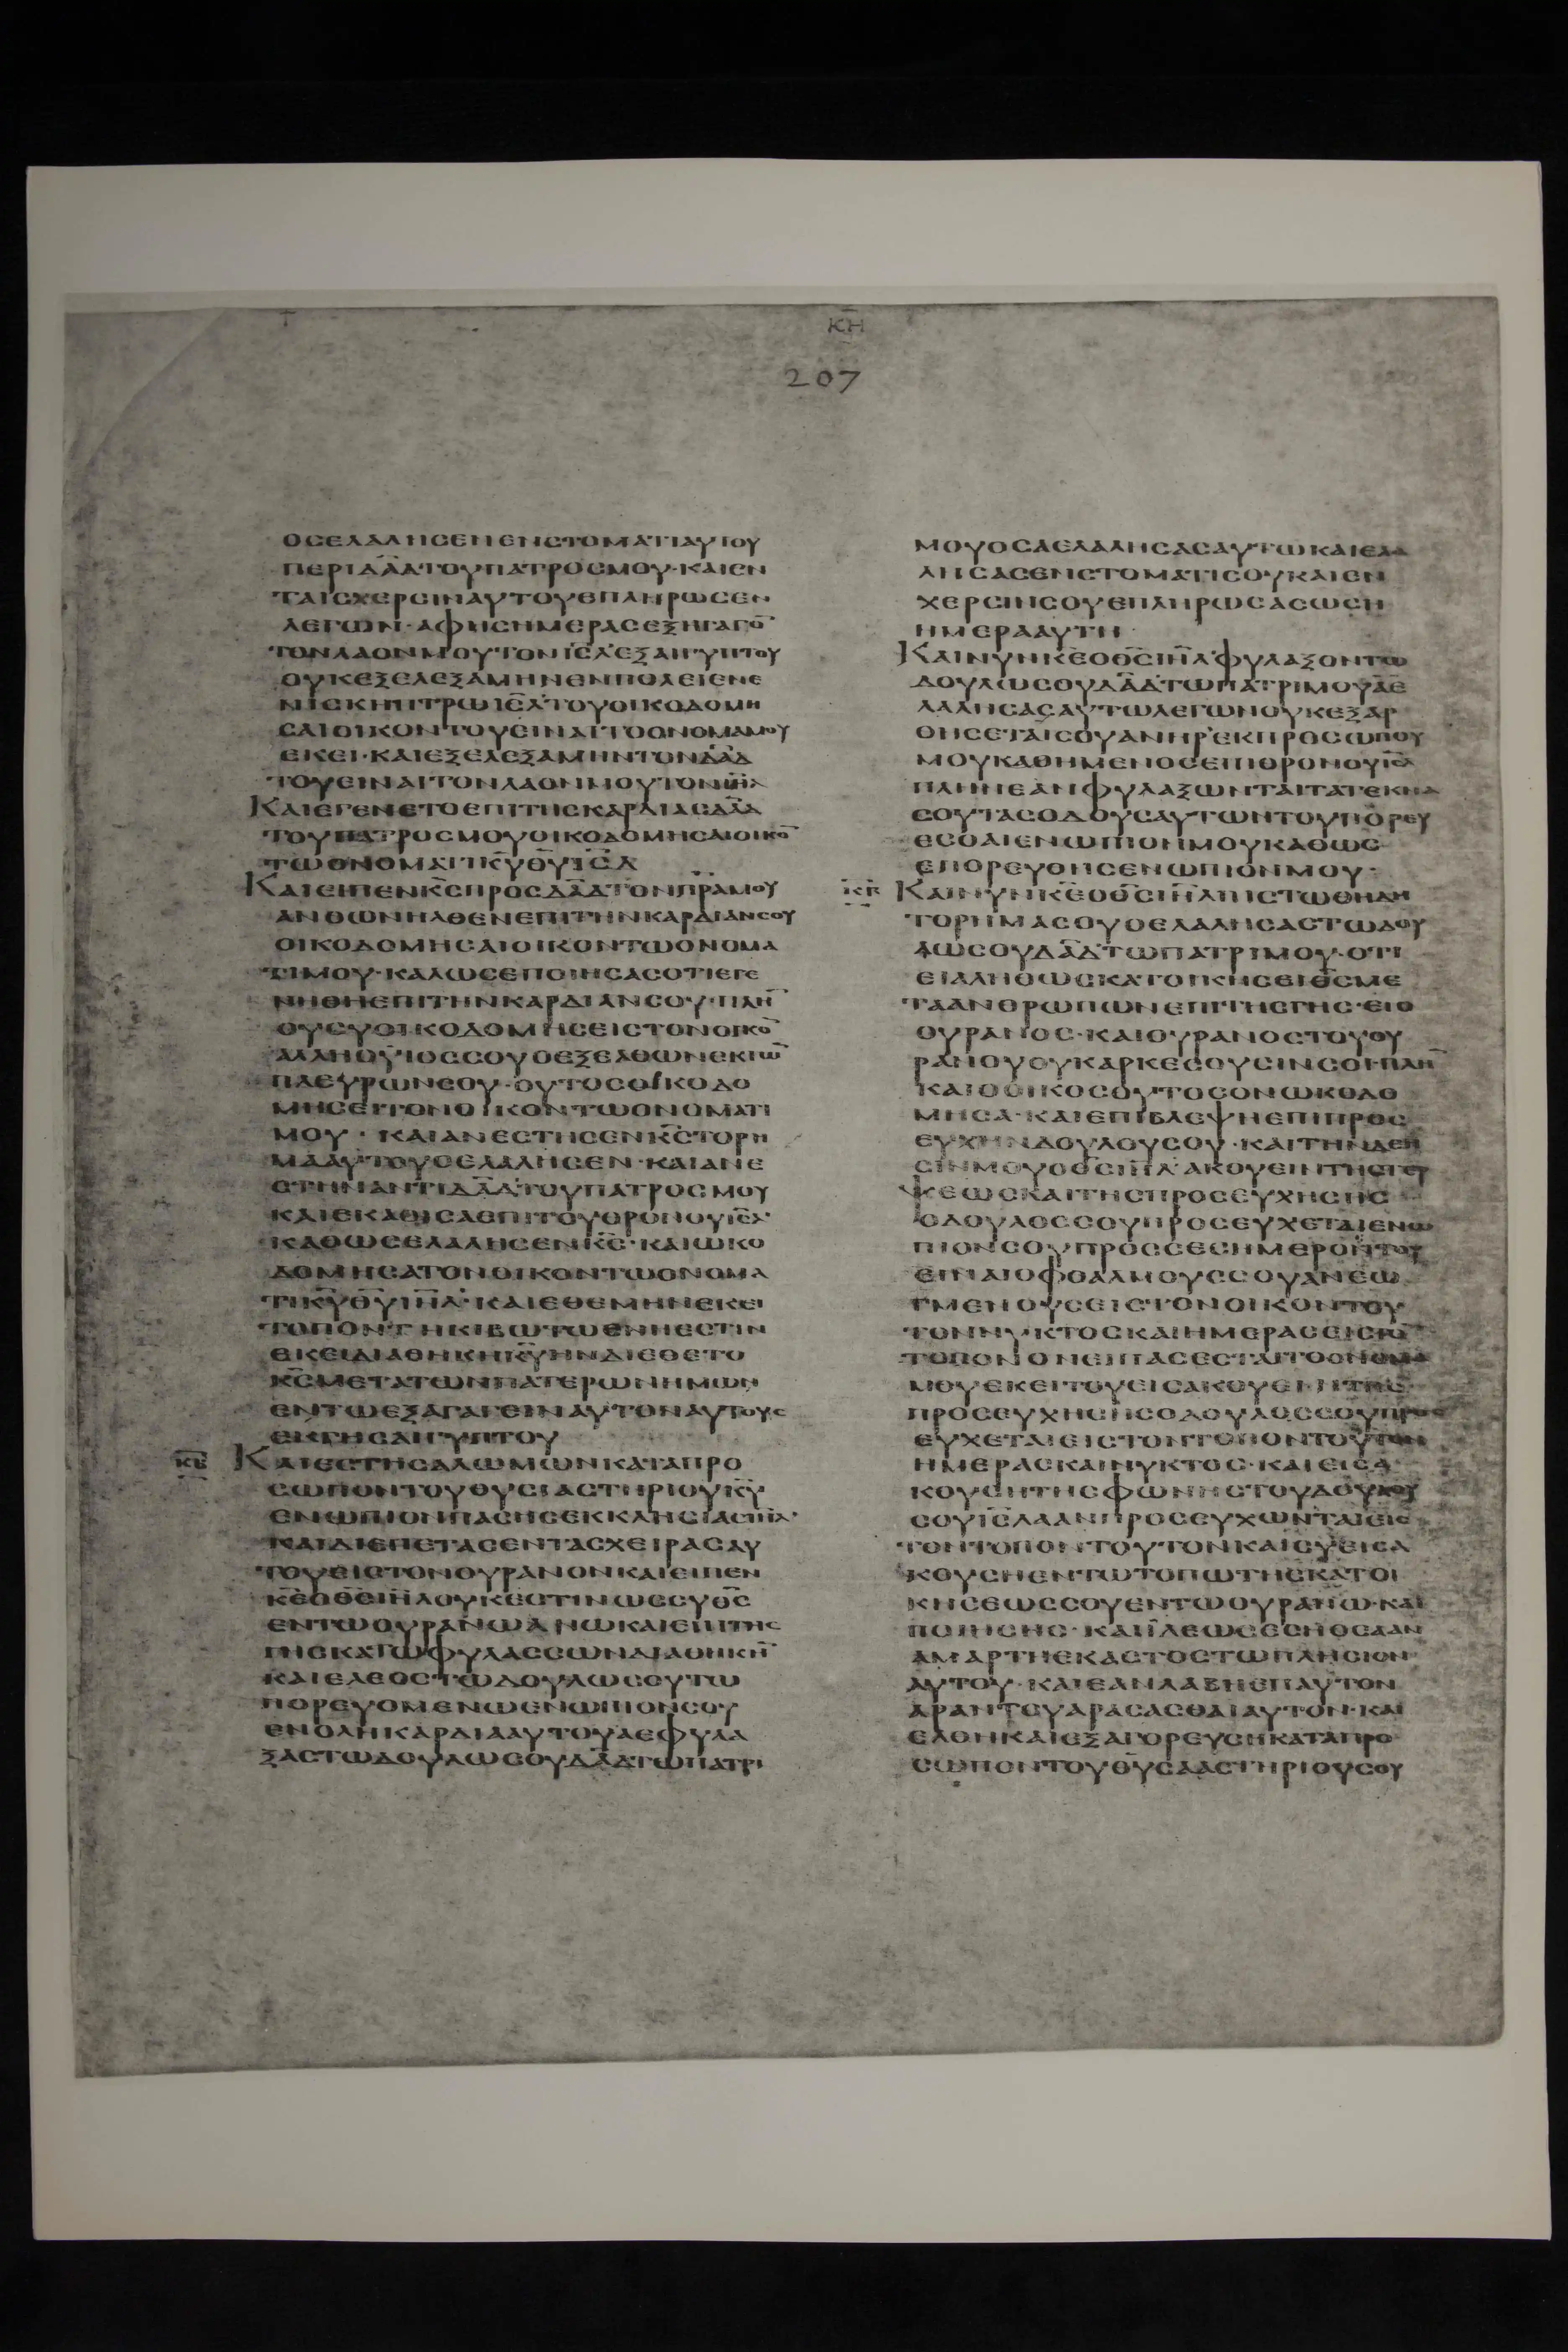 ΚΗ
207
ΟϹΕΛΑΛΗϹΕΝΕΝϹΤΟΜΑΤΙΑΥΤΟΥ
ΠΕΡΙΔΑ̅Δ̅ΤΟΥΠΑΤΡΟϹΜΟΥ·ΚΑΙΕΝ
ΤΑΙϹΧΕΡϹΙΝΑΥΤΟΥΕΠΛΗΡΩϹΕΝ
ΛΕΓΩΝ·ΑΦΗϹΗΜΕΡΑϹΕΞΗΓΑΓΟ̅
ΤΟΝΛΑΟΝΜΟΥΤΟΝΙ̅Ε̅Λ̅ΕΞΑΙΓΥΠΤΟΥ
ΟΥΚΕΞΕΛΕΞΑΜΗΝΕΝΠΟΛΕΙΕΝΕ
ΝΙϹΚΗΠΤΡΩΙ̅Ε̅Λ̅ΤΟΥΟΙΚΟΔΟΜΗ
ϹΑΙΟΙΚΟΝΤΟΥΕΙΝΑΙΤΟΟΝΟΜΑΜΟΥ
ΕΚΕΙ·ΚΑΙΕΞΕΛΕΞΑΜΗΝΤΟΝΔ̅Α̅Δ̅
ΤΟΥΕΙΝΑΙΤΟΝΛΑΟΝΜΟΥΤΟΝΙ̅Η̅Λ̅
ΚΑΙΕΓΕΝΕΤΟΕΠΙΤΗϹΚΑΡΔΙΑϹΔ̅Α̅Δ̅
ΤΟΥΠΑΤΡΟϹΜΟΥΟΙΚΟΔΟΜΗϹΑΙΟΙΚΟ̅
ΤΩΟΝΟΜΑΤΙΚ̅Υ̅Θ̅Υ̅Ι̅Ε̅Λ̅
ΚΑΙΕΙΠΕΝΚ̅Ϲ̅ΠΡΟϹΔ̅Α̅Δ̅ΤΟΝΠ̅Ρ̅Α̅ΜΟΥ
ΑΝΘΩΝΗΛΘΕΝΕΠΙΤΗΝΚΑΡΔΙΑΝϹΟΥ
ΟΙΚΟΔΟΜΗϹΑΙΟΙΚΟΝΤΩΟΝΟΜΑ
ΤΙΜΟΥ·ΚΑΛΩϹΕΠΟΙΗϹΑϹΟΤΙΕΓΕ
ΝΗΘΗΕΠΙΤΗΝΚΑΡΔΙΑΝϹΟΥ·ΠΛΗ̅
ΟΥϹΥΟΙΚΟΔΟΜΗϹΕΙϹΤΟΝΟΙΚΟ̅
ΑΛΛΗΟΥΙΟϹϹΟΥΟΕΞΕΛΘΩΝΕΚΤΩ̅
ΠΛΕΥΡΩΝϹΟΥ·ΟΥΤΟϹΟΙΚΟΔΟ
ΜΗϹΕΙΤΟΝΟΙΚΟΝΤΩΟΝΟΜΑΤΙ
ΜΟΥ·ΚΑΙΑΝΕϹΤΗϹΕΝΚ̅Ϲ̅ΤΟΡΗ
ΜΑΑΥΤΟΥΟΕΛΑΛΗϹΕΝ·ΚΑΙΑΝΕ
ϹΤΗΝΑΝΤΙΔ̅Α̅Δ̅ΤΟΥΠΑΤΡΟϹΜΟΥ
ΚΑΙΕΚΑΘΙϹΑΕΠΙΤΟΥΘΡΟΝΟΥΙ̅Ε̅Λ̅
ΚΑΘΩϹΕΛΑΛΗϹΕΝΚ̅Ϲ̅·ΚΑΙΩΚΟ
ΔΟΜΗϹΑΤΟΝΟΙΚΟΝΤΩΟΝΟΜΑ
ΤΙΚ̅Υ̅Θ̅Υ̅Ι̅Η̅Λ̅·ΚΑΙΕΘΕΜΗΝΕΚΕΙ
ΤΟΠΟΝΤΗΚΙΒΩΤΩΕΝΗΕϹΤΙΝ
ΕΚΕΙΔΙΑΘΗΚΗΚ̅Υ̅ΗΝΔΙΕΘΕΤΟ
Κ̅Ϲ̅ΜΕΤΑΤΩΝΠΑΤΕΡΩΝΗΜΩΝ
ΕΝΤΩΕΞΑΓΑΓΕΙΝΑΥΤΟΝΑΥΤΟΥϹ
ΕΚΓΗϹΑΙΓΥΠΤΟΥ
ΚΒ ΚΑΙΕϹΤΗϹΑΛΩΜΩΝΚΑΤΑΠΡΟ
ϹΩΠΟΝΤΟΥΘΥϹΙΑϹΤΗΡΙΟΥΚ̅Υ̅
ΕΝΩΠΙΟΝΠΑϹΗϹΕΚΚΛΗϹΙΑϹΙ̅Η̅Λ̅·
ΚΑΙΔΙΕΠΕΤΑϹΕΝΤΑϹΧΕΙΡΑϹΑΥ
ΤΟΥΕΙϹΤΟΝΟΥΡΑΝΟΝΚΑΙΕΙΠΕΝ
Κ̅Ε̅Ο̅Θ̅Ϲ̅Ι̅Η̅Λ̅ΟΥΚΕϹΤΙΝΩϹϹΥΘ̅Ϲ̅
ΕΝΤΩΟΥΡΑΝΩΑΝΩΚΑΙΕΠΙΤΗϹ
ΓΗϹΚΑΤΩΦΥΛΑϹϹΩΝΔΙΑΘΗΚΗ̅
ΚΑΙΕΛΕΟϹΤΩΔΟΥΛΩϹΟΥΤΩ
ΠΟΡΕΥΟΜΕΝΩΕΝΩΠΙΟΝϹΟΥ
ΕΝΟΛΗΚΑΡΔΙΑΑΥΤΟΥΑΕΦΥΛΑ
ΞΑϹΤΩΔΟΥΛΩϹΟΥΔ̅Α̅Δ̅ΤΩΠΑΤΡΙ
ΜΟΥΟϹΑΕΛΑΛΗϹΑϹΑΥΤΩΚΑΙΕΛΑ
ΛΗϹΑϹΕΝϹΤΟΜΑΤΙϹΟΥΚΑΙΕΝ
ΧΕΡϹΙΝϹΟΥΕΠΛΗΡΩϹΑϹΩϹΗ
ΗΜΕΡΑΑΥΤΗ
ΚΑΙΝΥΝΚ̅Ε̅Ο̅Θ̅Ϲ̅Ι̅Η̅Λ̅ΦΥΛΑΞΟΝΤΩ
ΔΟΥΛΩϹΟΥΔ̅Α̅Δ̅ΤΩΠΑΤΡΙΜΟΥΑΕ
ΛΑΛΗϹΑϹΑΥΤΩΛΕΓΩΝΟΥΚΕΞΑΡ
ΘΗϹΕΤΑΙϹΟΥΑΝΗΡΕΚΠΡΟϹΩΠΟΥ
ΜΟΥΚΑΘΗΜΕΝΟϹΕΠΙΘΡΟΝΟΥΙ̅Ε̅Λ̅
ΠΛΗΝΕΑΝΦΥΛΑΞΩΝΤΑΙΤΑΤΕΚΝΑ
ϹΟΥΤΑϹΟΔΟΥϹΑΥΤΩΝΤΟΥΠΟΡΕΥ
ΕϹΘΑΙΕΝΩΠΙΟΝΜΟΥΚΑΘΩϹ
ΕΠΟΡΕΥΘΗϹΕΝΩΠΙΟΝΜΟΥ·
ΚΓ ΚΑΙΝΥΝΚ̅Ε̅Ο̅Θ̅Ϲ̅Ι̅Η̅Λ̅ΠΙϹΤΩΘΗΔΗ
ΤΟΡΗΜΑϹΟΥΟΕΛΑΛΗϹΑϹΤΩΔΟΥ
ΛΩϹΟΥΔ̅Α̅Δ̅ΤΩΠΑΤΡΙΜΟΥ·ΟΤΙ
ΕΙΑΛΗΘΩϹΚΑΤΟΙΚΗϹΕΙΘ̅Ϲ̅ΜΕ
ΤΑΑΝΘΡΩΠΩΝΕΠΙΤΗϹΓΗϹ·ΕΙΟ
ΟΥΡΑΝΟϹ·ΚΑΙΟΥΡΑΝΟϹΤΟΥΟΥ
ΡΑΝΟΥΟΥΚΑΡΚΕϹΟΥϹΙΝϹΟΙ·ΠΛΗ̅
ΚΑΙΟΟΙΚΟϹΟΥΤΟϹΟΝΩΚΟΔΟ
ΜΗϹΑ·ΚΑΙΕΠΙΒΛΕΨΗΕΠΙΠΡΟϹ
ΕΥΧΗΝΔΟΥΛΟΥϹΟΥ·ΚΑΙΤΗΝΔΕΗ
ϹΙΝΜΟΥΟΘ̅Ϲ̅Ι̅Η̅Λ̅·ΑΚΟΥΕΙΝΤΗϹΓΕΥ
ΨΕΩϹΚΑΙΤΗϹΠΡΟϹΕΥΧΗϹΗϹ
ΟΔΟΥΛΟϹϹΟΥΠΡΟϹΕΥΧΕΤΑΙΕΝΩ
ΠΙΟΝϹΟΥΠΡΟϹϹΕϹΗΜΕΡΟΝΤΟΥ
ΕΙΝΑΙΟΦΘΑΛΜΟΥϹϹΟΥΑΝΕΩ
ΓΜΕΝΟΥϹΕΙϹΤΟΝΟΙΚΟΝΤΟΥ
ΤΟΝΝΥΚΤΟϹΚΑΙΗΜΕΡΑϹΕΙϹΤΟ̅
ΤΟΠΟΝΟΝΕΙΠΑϹΕϹΤΑΙΤΟΟΝΟΜΑ
ΜΟΥΕΚΕΙΤΟΥΕΙϹΑΚΟΥΕΙΝΤΗϹ
ΠΡΟϹΕΥΧΗϹΗϹΟΔΟΥΛΟϹϹΟΥΠΡΟϹ
ΕΥΧΕΤΑΙΕΙϹΤΟΝΤΟΠΟΝΤΟΥΤΟΝ
ΗΜΕΡΑϹΚΑΙΝΥΚΤΟϹ·ΚΑΙΕΙϹΑ
ΚΟΥϹΗΤΗϹΦΩΝΗϹΤΟΥΔΟΥΛΟΥ
ϹΟΥΙ̅Ε̅Λ̅ΑΑΝΠΡΟϹΕΥΧΩΝΤΑΙΕΙϹ
ΤΟΝΤΟΠΟΝΤΟΥΤΟΝΚΑΙϹΥΕΙϹΑ
ΚΟΥϹΗΕΝΤΩΤΟΠΩΤΗϹΚΑΤΟΙ
ΚΗϹΕΩϹϹΟΥΕΝΤΩΟΥΡΑΝΩ·ΚΑΙ
ΠΟΙΗϹΗϹ·ΚΑΙΪΛΕΩϹΕϹΗΟϹΑΑΝ
ΑΜΑΡΤΗΕΚΑϹΤΟϹΤΩΠΛΗϹΙΟΝ
ΑΥΤΟΥ·ΚΑΙΕΑΝΛΑΒΗΕΠΑΥΤΟΝ
ΑΡΑΝΤΟΥΑΡΑϹΑϹΘΑΙΑΥΤΟΝ·ΚΑΙ
ΕΛΘΗΚΑΙΕΞΑΓΟΡΕΥϹΗΚΑΤΑΠΡΟ
ϹΩΠΟΝΤΟΥΘΥϹΑΑϹΤΗΡΙΟΥϹΟΥ